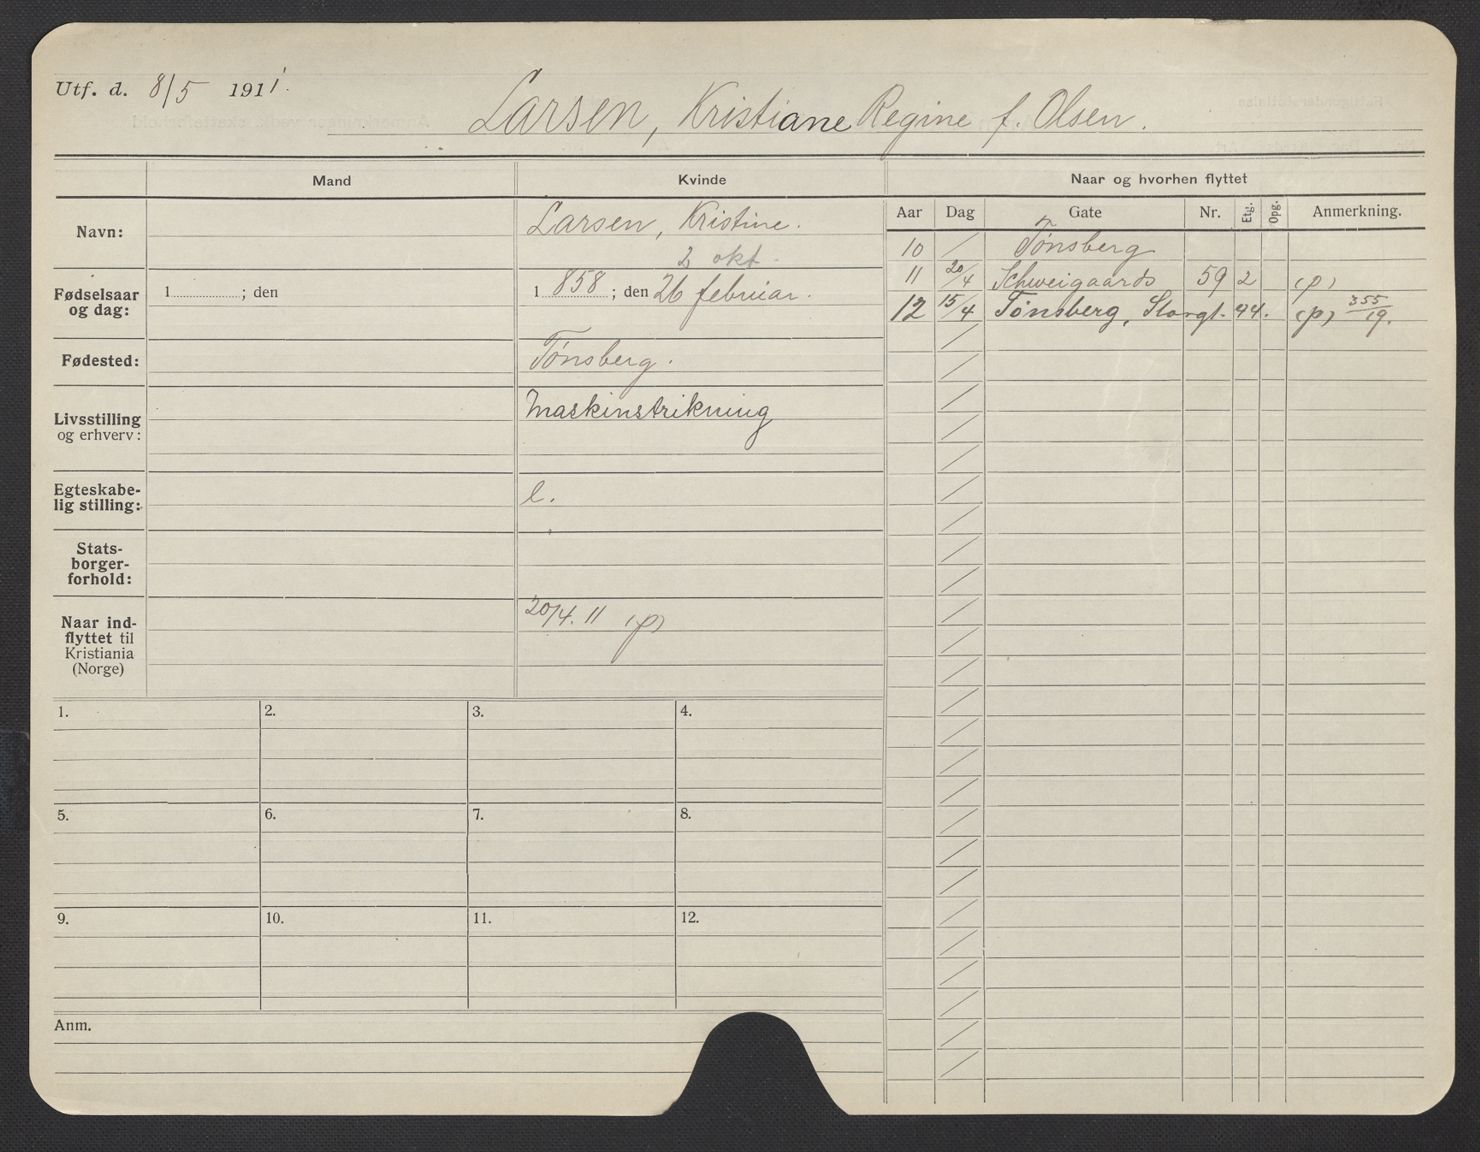 Utf. d. 8/5 1911.
Larsen, Kristiane Regine f. Olsen.
Mand Kvinde Naar og hvorhen flyttet
Navn: Larsen, Kristine.
2 okt.
Fødselsaar og dag: 1 ; den 1 858 ; den 26 februar.
Fødested: Tønsberg.
Livsstilling og erhverv: Maskinstrikning
Egteskabelig stilling: e.
Statsborgerforhold:
Naar indflyttet til Kristiania (Norge) 20/4. 11 (p)
Aar Dag Gate Nr. Etg. Opg. Anmerkning.
10 / Tønsberg
11 20/4 Schweigaards 59 2 (p)
12 15/4 Tønsberg, Storgt. 44. (p) 355/19.
1. 2. 3. 4.
5. 6. 7. 8.
9. 10. 11. 12.
Anm.